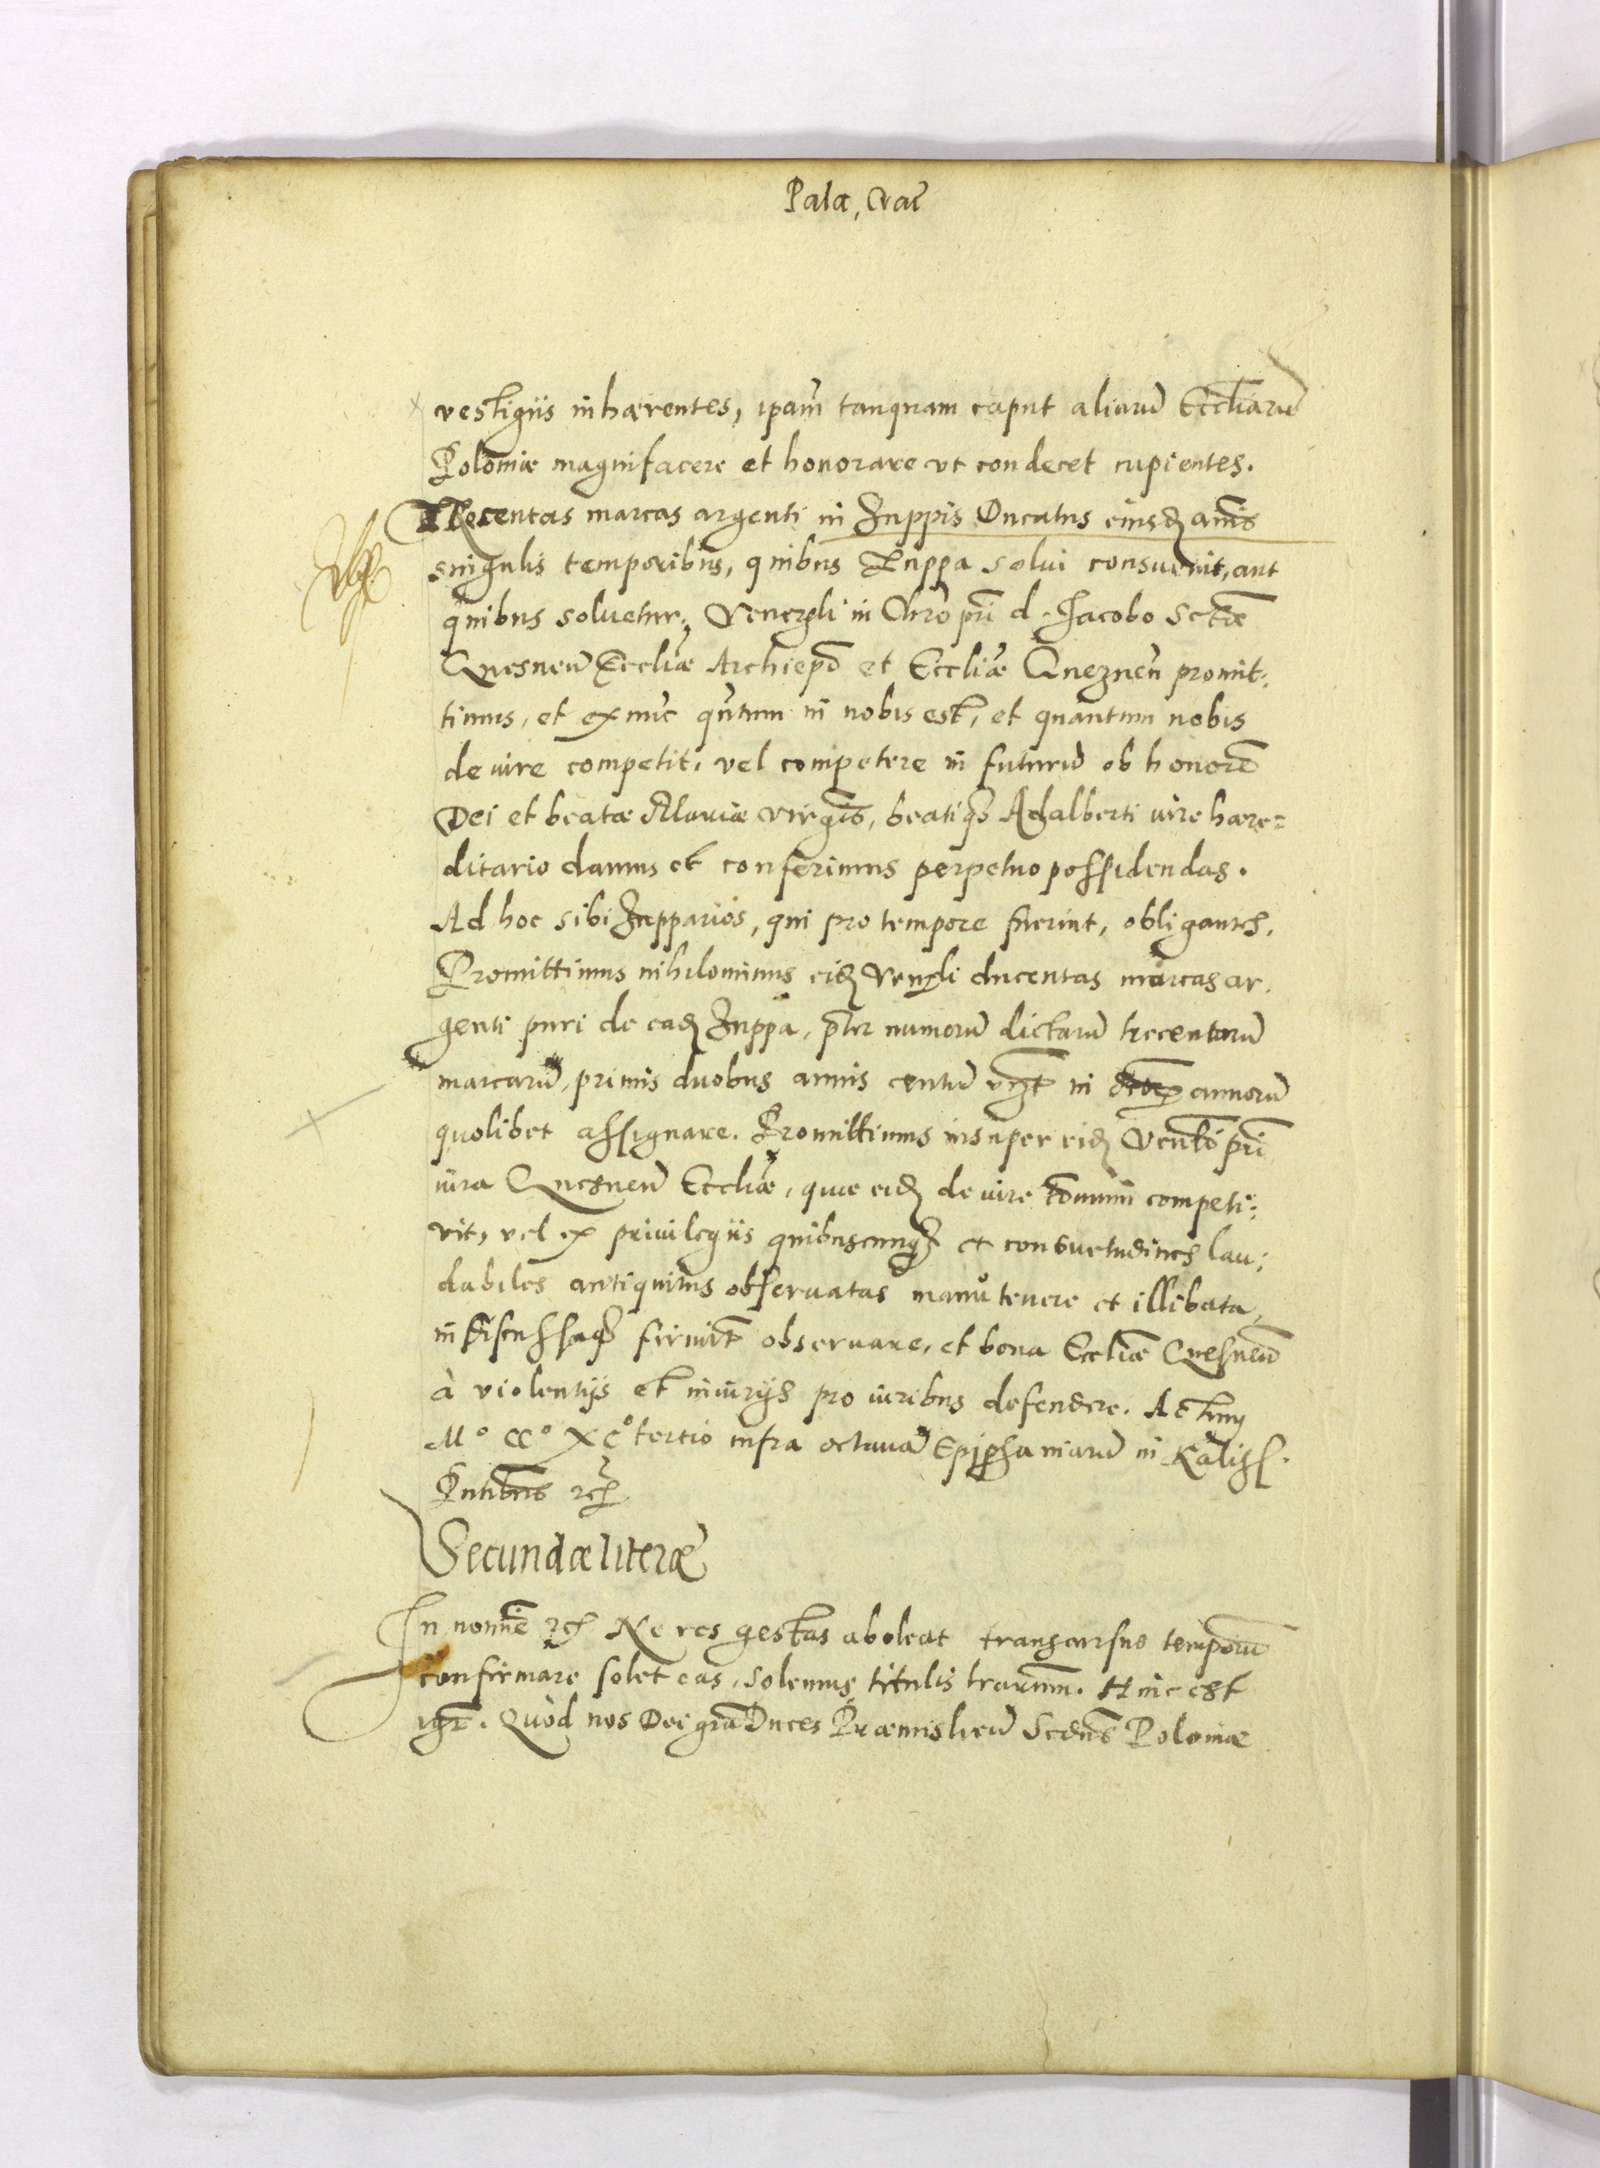 Palæ, Crac̃
vestigiis inhærentes, ipam̃ tanquam caput aliarũ Ecclĩarũ
Poloniæ magnifacere et honorare vt condecet cupientes.
Trecentas marcas argenti in Zuppis Ducatus eiusdẽ annis
singulis temporibus, quibus Zuppa solui consueuit, aut
quibus soluetur, Venerãli in Chrõ pr̃i d. Jacobo Sctæ̃
Gnesneñ Eccliæ̃ Archiepõ et Eccliæ̃ Gnezneñ promit:
timus, et ex nũc qũtum in nobis est, et quantum nobis
de iure competit, vel competere in futurũ ob honorẽ
Dei et beatæ Mariæ virgĩs, beatiq; Adalberti iure hære=
ditario damus et conferimus perpetuo possidendas.
Ad hoc sibi Zupparios, qui pro tempore fuerint, obligantes.
Promittimus nihilominus eidẽ Veñli ducentas marcas ar.
genti puri de eadẽ Zuppa, p̃ter numerũ dictarũ trecentarũ
marcarũ, primis duobus annis centũ vz̃ in annorũ
quolibet assignare. Promittimus insuper eidẽ Veñdo pr̃i
iura Gnesneñ Eccliæ̃, quæ eidẽ de iure com̃uni competi:
uit, vel ex priuilegiis quibuscunq; et consuetudines lau:
dabiles antiquitus obseruatas manũtenere et illibata,
indiscussaq; firmit̃ obseruare, et bona Eccliæ̃ Gnesneñ
à violentijs et iniurijs pro iuribus defendere. Actum
Mº CCº XCº tertio infra octauã Epiphaniarũ in Kalisz.
Pñtibus etc̃
Secundæ literæ
In nomĩe etc̃ Ne res gestas aboleat transcursus temporũ
confirmare solet eas, solemnis titulis lr̃arum. Hinc est
igr̃. Quòd nos Dei grã Duces Præmisliũ Sedñs Poloniæ